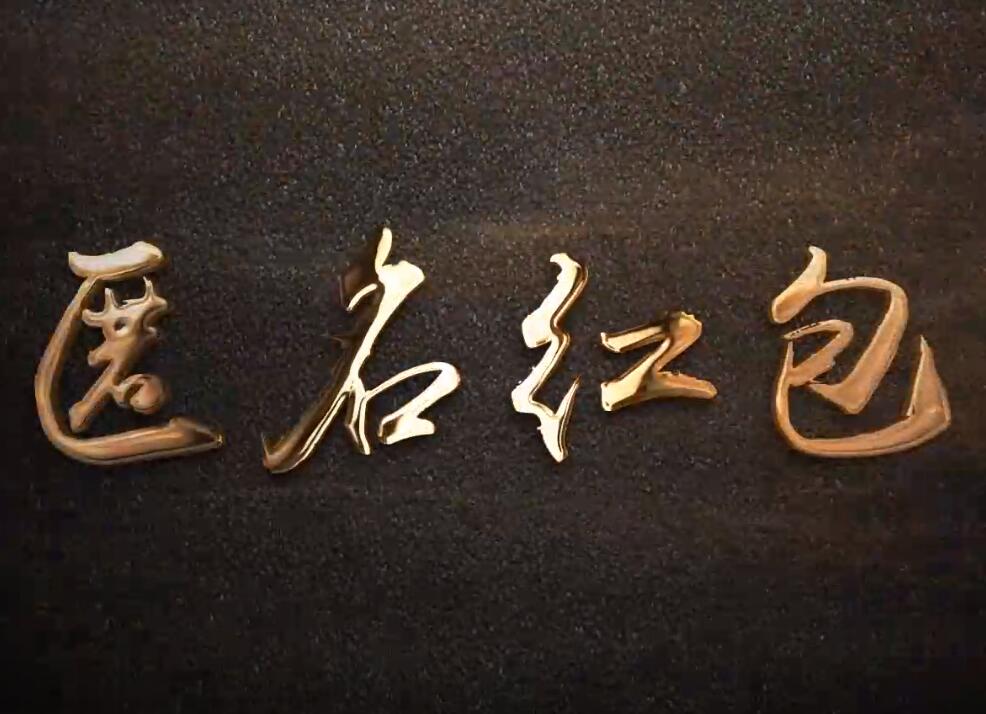 匿名红包